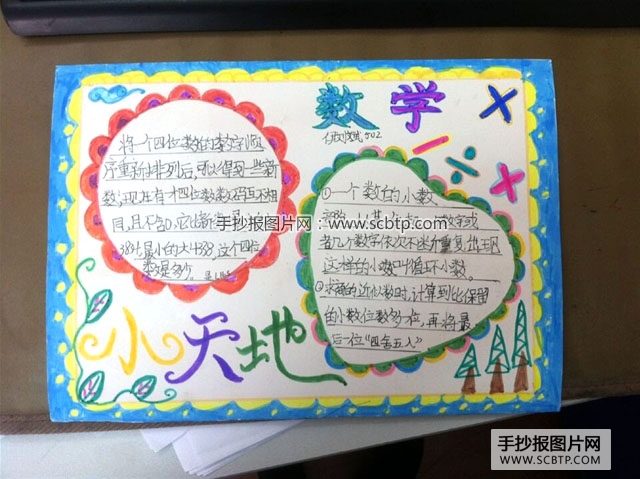 数学
将一个四位数的数字顺
序重新排列后,可以得到一些新
数,现在有个四位数数码互不相
同,且不含0,它比新
38比最小的大4338,这个四位
数是多少。
手抄报图片网:www.scbtp.com
①一个数的小数
数字或
者几个数字依次不断重复出现
这样的小数叫循环小数。
②求商的近似数时,计算到比保留
的小数位数多一位,再将最
后一位“四舍五入”
小天地
手抄报图片网
WWW.SCBTP.COM